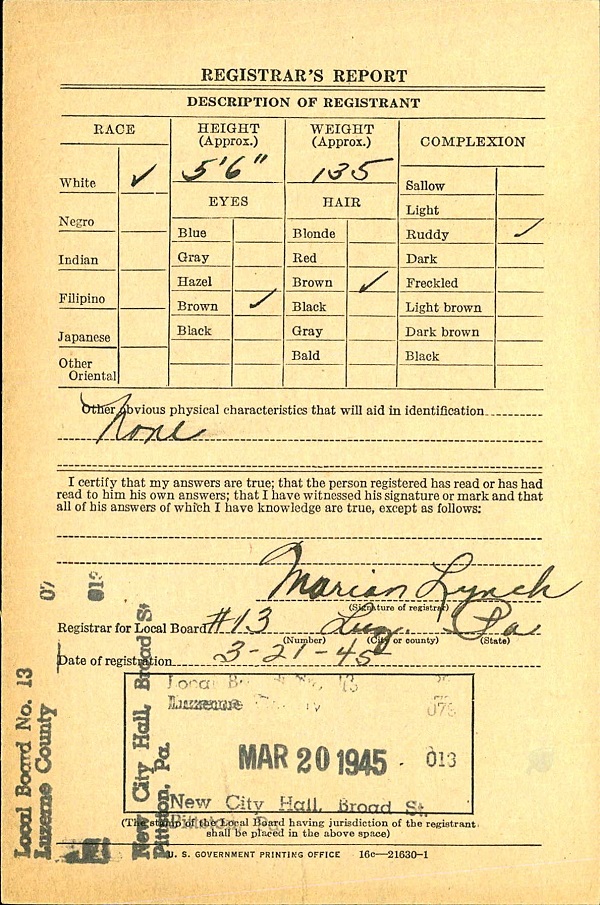 REGISTRAR'S REPORT
DESCRIPTION OF REGISTRANT
RACE
HEIGHT (Approx.)
WEIGHT (Approx.)
COMPLEXION
5'6"
135
White ✓
Negro
Indian
Filipino
Japanese
Other Oriental
EYES
Blue
Gray
Hazel
Brown ✓
Black
HAIR
Blonde
Red
Brown ✓
Black
Gray
Bald
Sallow
Light
Ruddy ✓
Dark
Freckled
Light brown
Dark brown
Black
Other obvious physical characteristics that will aid in identification
None
I certify that my answers are true; that the person registered has read or has had
read to him his own answers; that I have witnessed his signature or mark and that
all of his answers of which I have knowledge are true, except as follows:
Marian Lynch
(Signature of registrar)
Registrar for Local Board #13 Luz. Pa
(Number) (City or county) (State)
Date of registration 3-21-45
Local 13
Luzerne
079
MAR 20 1945 013
New City Hall, Broad St.
Pittston, Pa.
(The stamp of the Local Board having jurisdiction of the registrant
shall be placed in the above space)
U. S. GOVERNMENT PRINTING OFFICE 16c—21630-1
Local Board No. 13 07
Luzerne County
013
New City Hall, Broad St
Pittston, Pa.